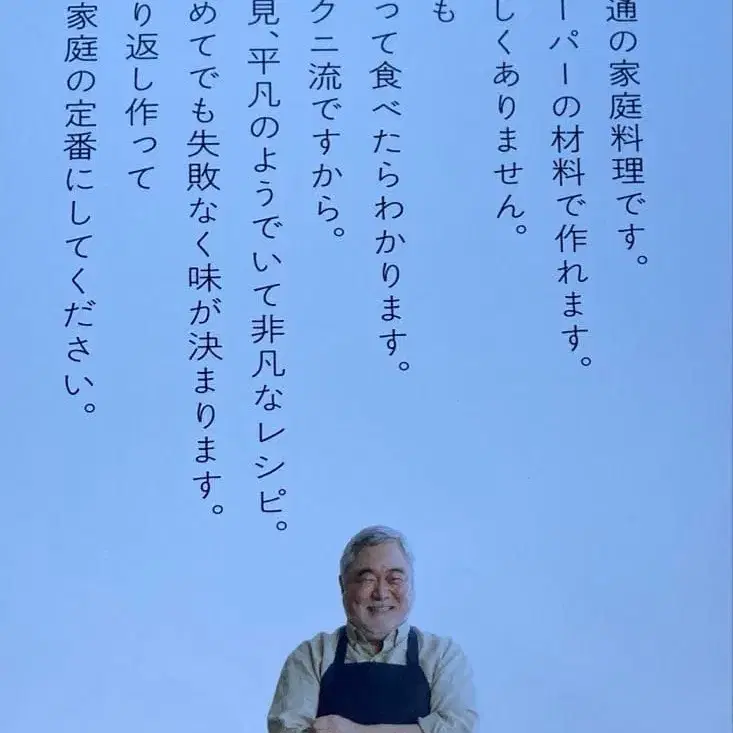 通の家庭料理です。
ーパーの材料で作れます。
しくありません。
も
って食べたらわかります。
クニ流ですから。
見、平凡のようでいて非凡なレシピ。
めてでも失敗なく味が決まります。
り返し作って
家庭の定番にしてください。